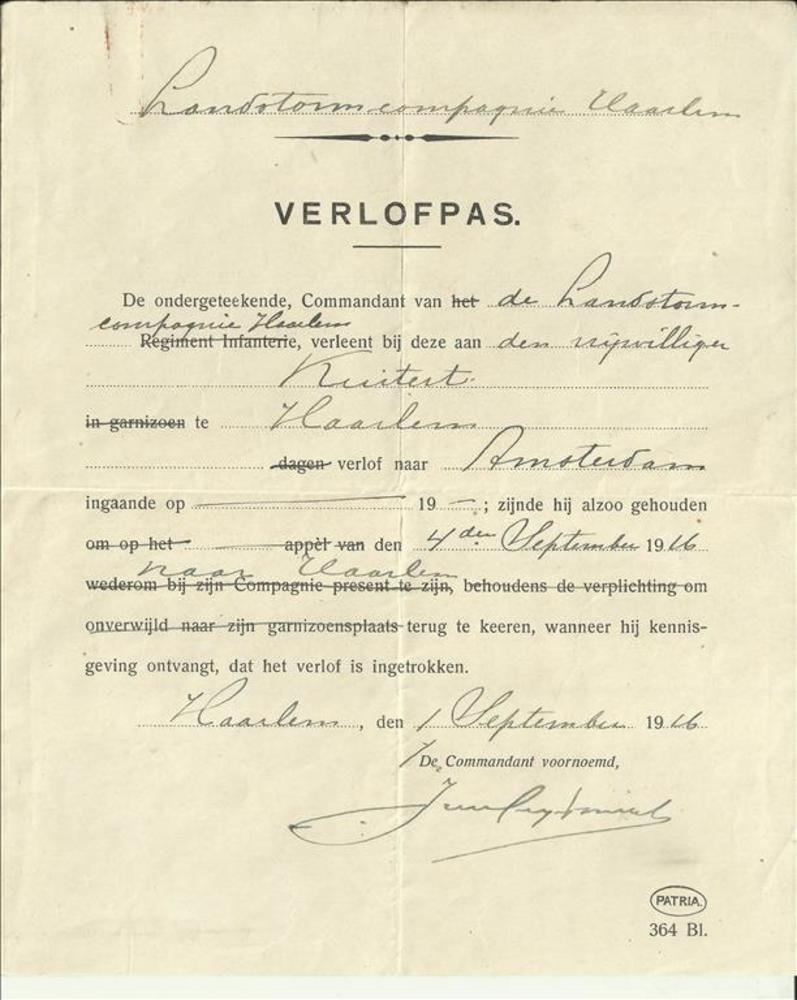 Landstormcompagnie Haarlem
VERLOFPAS.
De ondergeteekende, Commandant van het de Landstorm-
compagnie Haarlem
Regiment Infanterie, verleent bij deze aan den vrijwilliger
Kuitert.
in garnizoen te Haarlem
dagen verlof naar Amsterdam
ingaande op 19 — ; zijnde hij alzoo gehouden
om op het appèl van den 4den September 1916
naar Haarlem
wederom bij zijn Compagnie present te zijn, behoudens de verplichting om
onverwijld naar zijn garnizoensplaats terug te keeren, wanneer hij kennis-
geving ontvangt, dat het verlof is ingetrokken.
Haarlem, den 1 September 1916
De Commandant voornoemd,
PATRIA.
364 Bl.